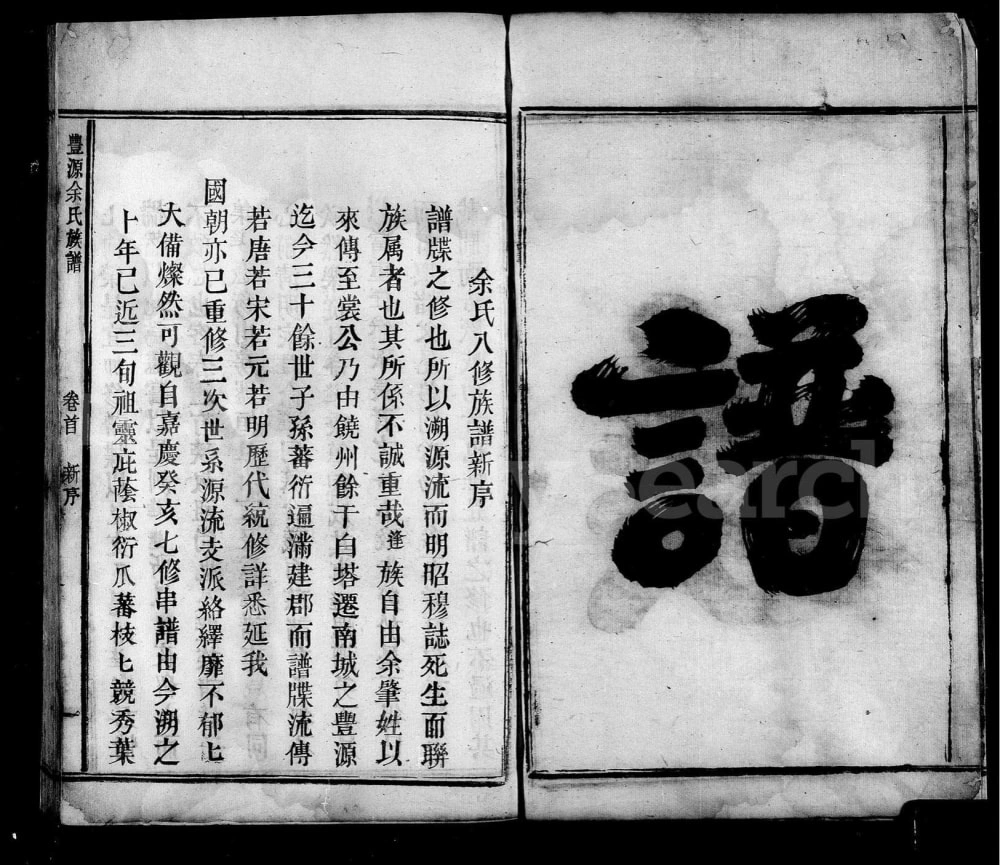 譜
余氏八修族譜新序
譜牒之修也所以溯源流而明昭穆誌死生而聯
族属者也其所係不誠重哉逢族自由余肇姓以
來傳至裳公乃由饒州餘干白塔遷南城之豐源
迄今三十餘世子孫蕃衍遍滿建郡而譜牒流傳
若唐若宋若元若明歷代統修詳悉延我
國朝亦已重修三次世系源流支派絡繹靡不郁匕
大備燦然可觀自嘉慶癸亥七修串譜由今溯之
年已近三旬祖靈庇蔭椒衍爪蕃枝匕競秀葉
豐源余氏族譜
卷首
新序